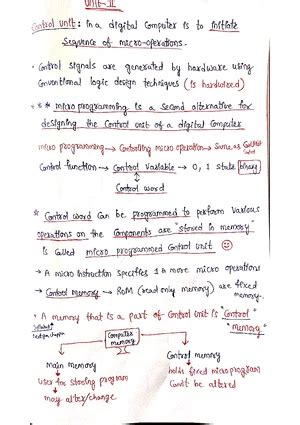 UNIT-II
Control unit: In a digital Computer is to initiate
Sequence of micro-operations.
• Control signals are generated by hardware using
Conventional logic design techniques (is hardwired)
** microprogramming is a second alternative for
designing the control unit of a digital computer
micro programming → Controlling micro operation → Same as
Control function → Control Variable → 0, 1 state binary
Control word
* Control word can be programmed to perform various
operations on the Components are stored in memory
is called micro programmed Control unit
→ A micro instruction specifies 1 & more micro operations
→ Control memory → ROM (read only memory) are fixed
memory.
• A memory that is a part of control unit is "Control
memory"
Computer
memory
main memory
Control memory
→ user for storing program
holds fixed microprogram
→ may alter/change
Can't be altered